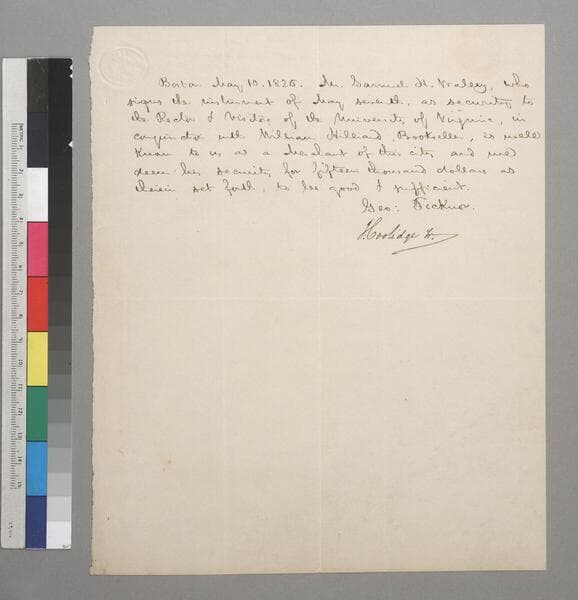 Boston May 10. 1825. Mr. Samuel H. Walley, who
signs the instrument of May seventh, as security to
the Rector & Visitors of the University of Virginia, in
conjunction with William Hilliard, Bookseller, is well
known to us as a Merchant of this city and we
deem his security for fifteen thousand dollars as
therein set forth, to be good & sufficient.
Geo: Ticknor.
J Coolidge Jr.